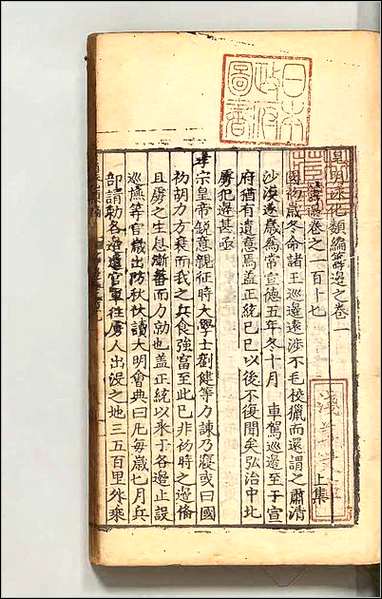 日本
政府
圖書
皇明泳化類編籌邊之卷一
籌邊卷之一百十七
淺草文庫
上集
國初歲冬命諸王巡邊遠涉不毛校獵而還謂之肅清
沙漠遂歲為常宣德五年冬十月 車駕巡邊至于宣
府猶有遺意焉盖正統已巳以後不復聞矣弘治中北
虜犯邊甚亟
孝宗皇帝鋭意親征時大學士劉健等力諫乃寢或曰國
初胡力方衰而我之兵食強富至此已非初時之邊備
且虜之生息漸蕃而力漸勍也盖正統以來于各邊止設
巡撫等官歲出防秋伏讀大明會典曰凢每歲七月兵
部請勑各邊遣官軍往虜人出没之地三五百里外乘